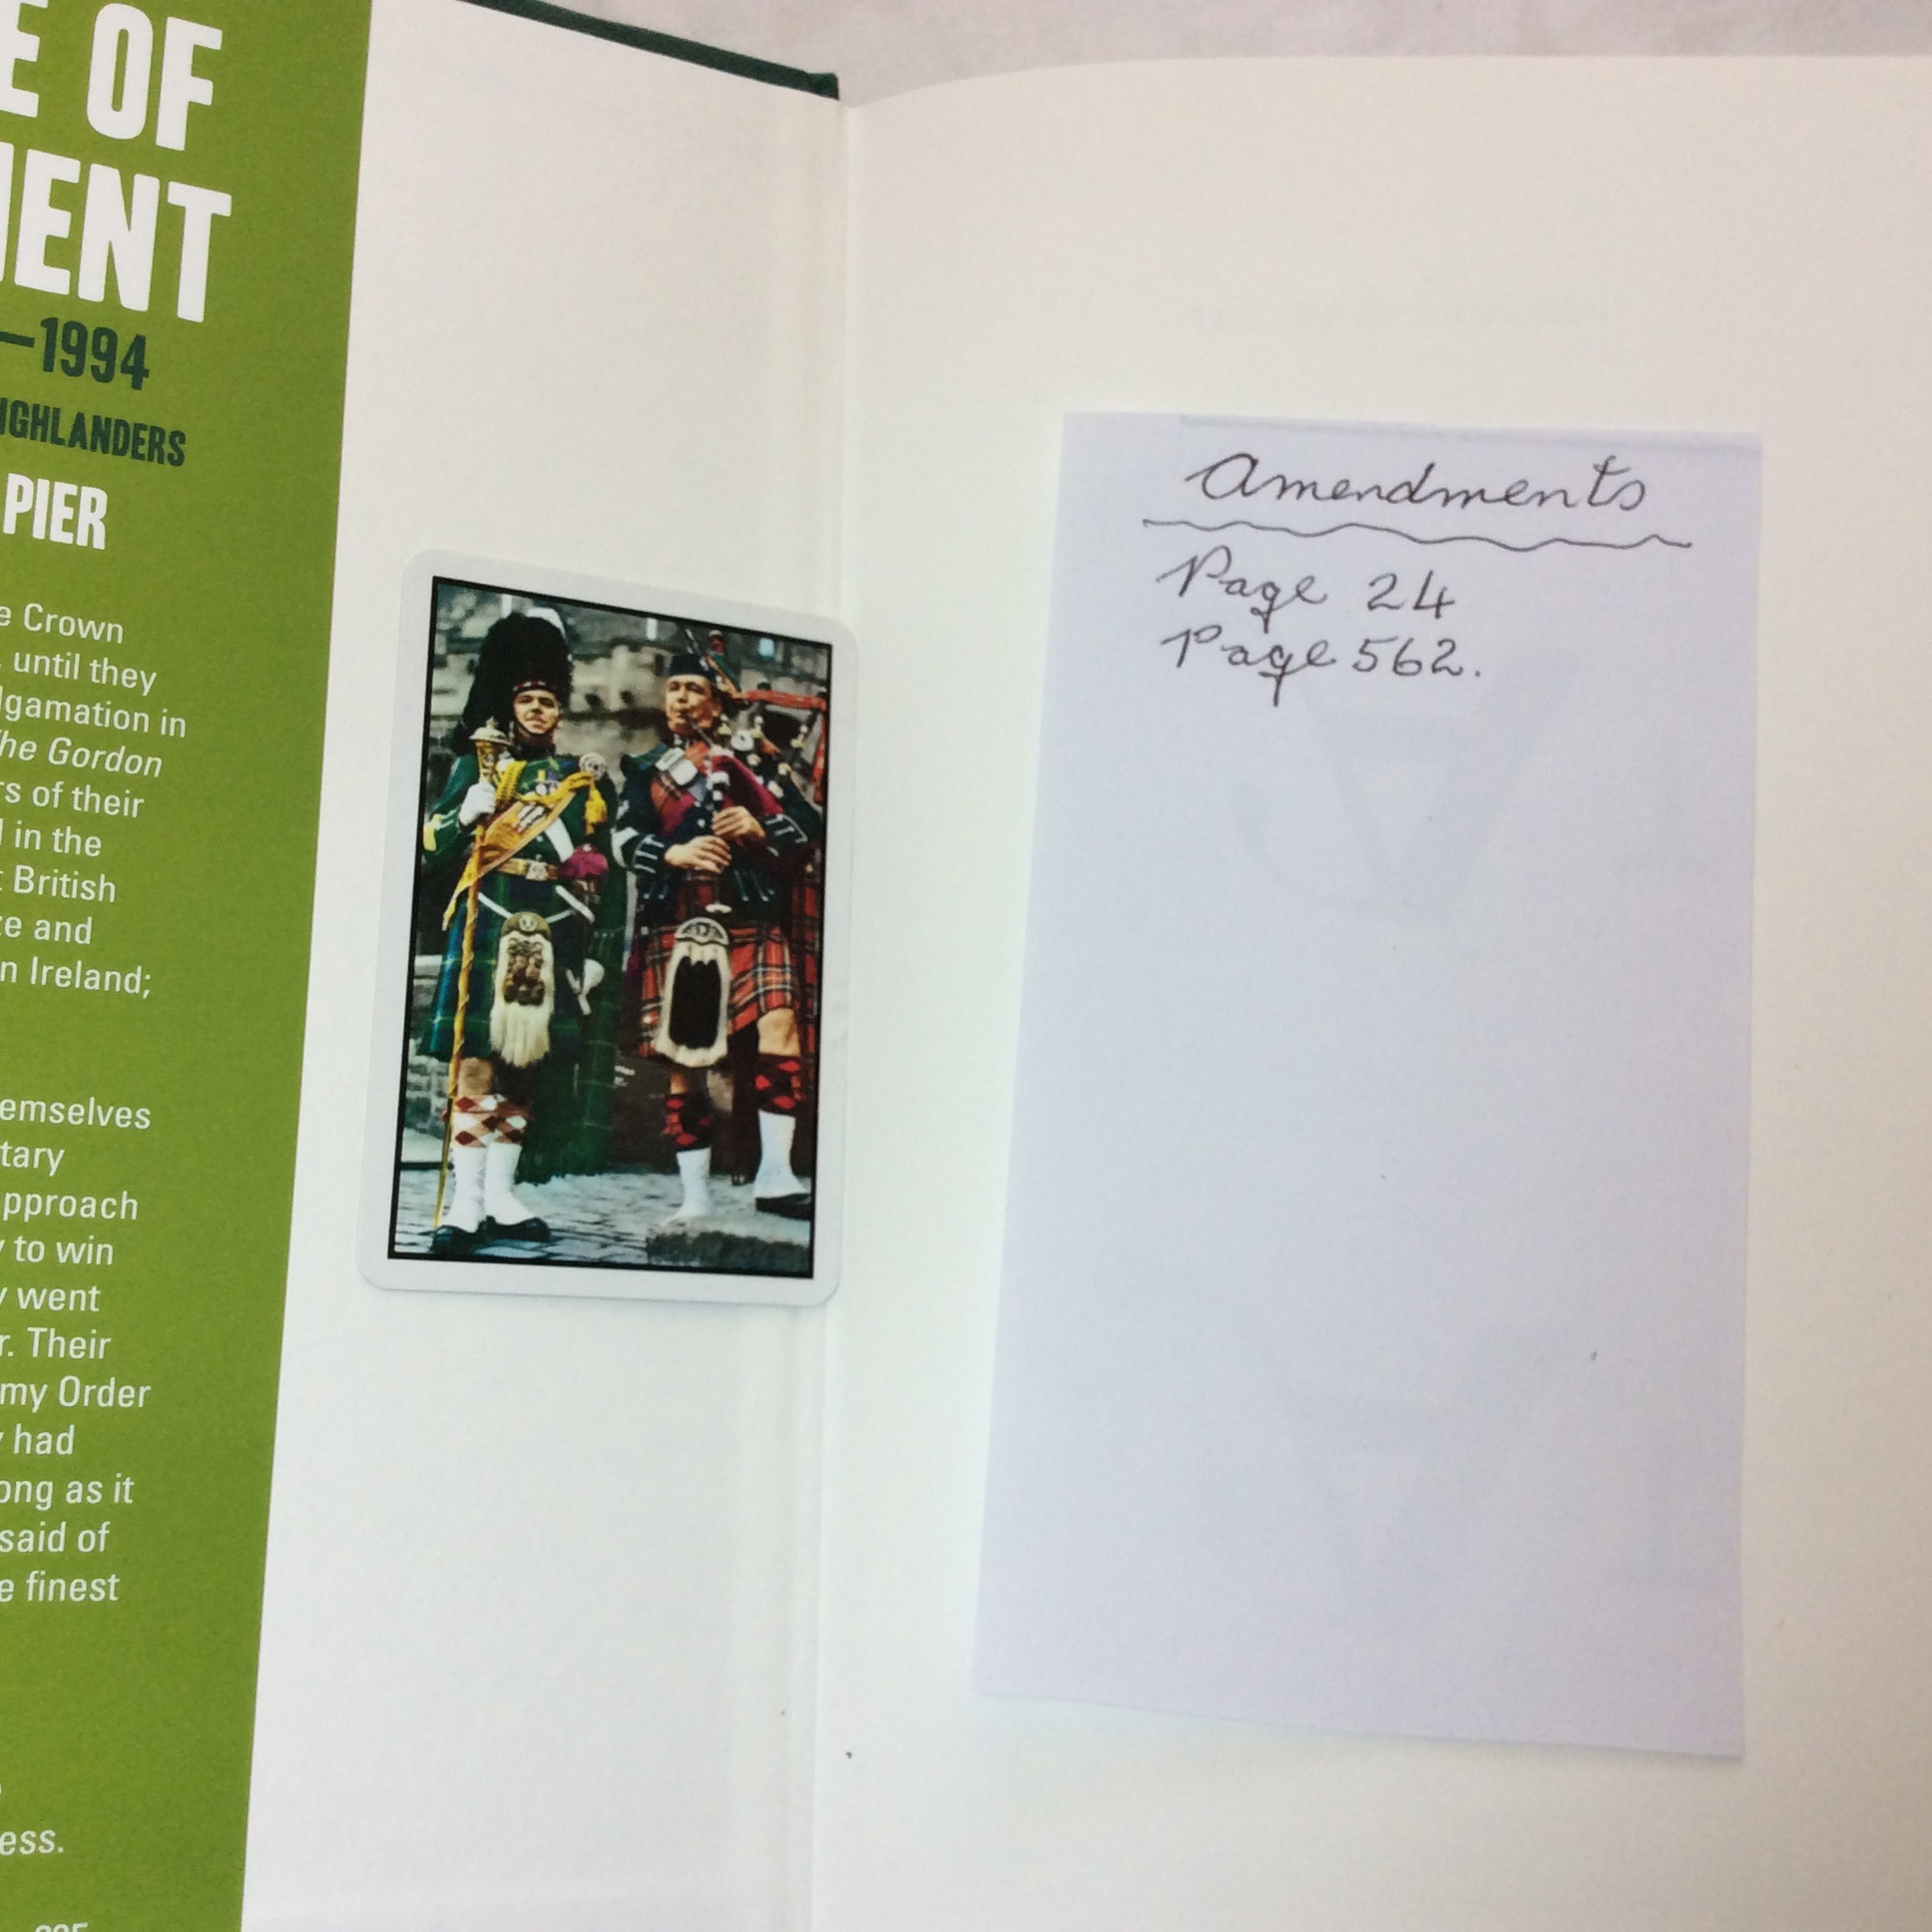 E OF
MENT
–1994
IGHLANDERS
PIER
e Crown
until they
lgamation in
he Gordon
rs of their
in the
British
ze and
n Ireland;
emselves
tary
pproach
to win
went
r. Their
my Order
had
ong as it
said of
e finest
ess.
Amendments
Page 24
Page 562.